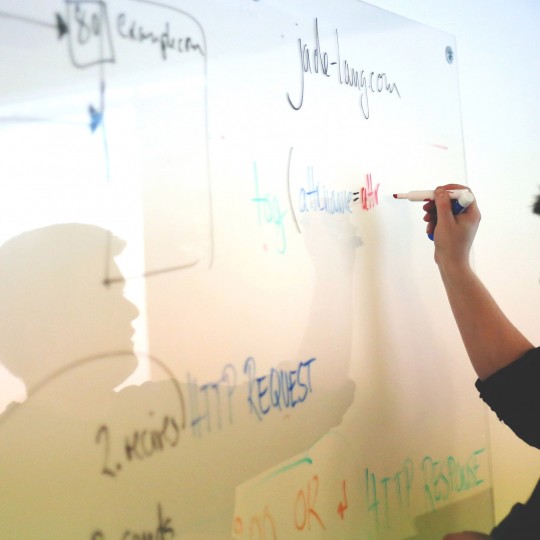 80 example.com
jade-lang.com
tag (attr.name=attr
2. recives HTTP REQUEST
OR + HTTP RESPONSE